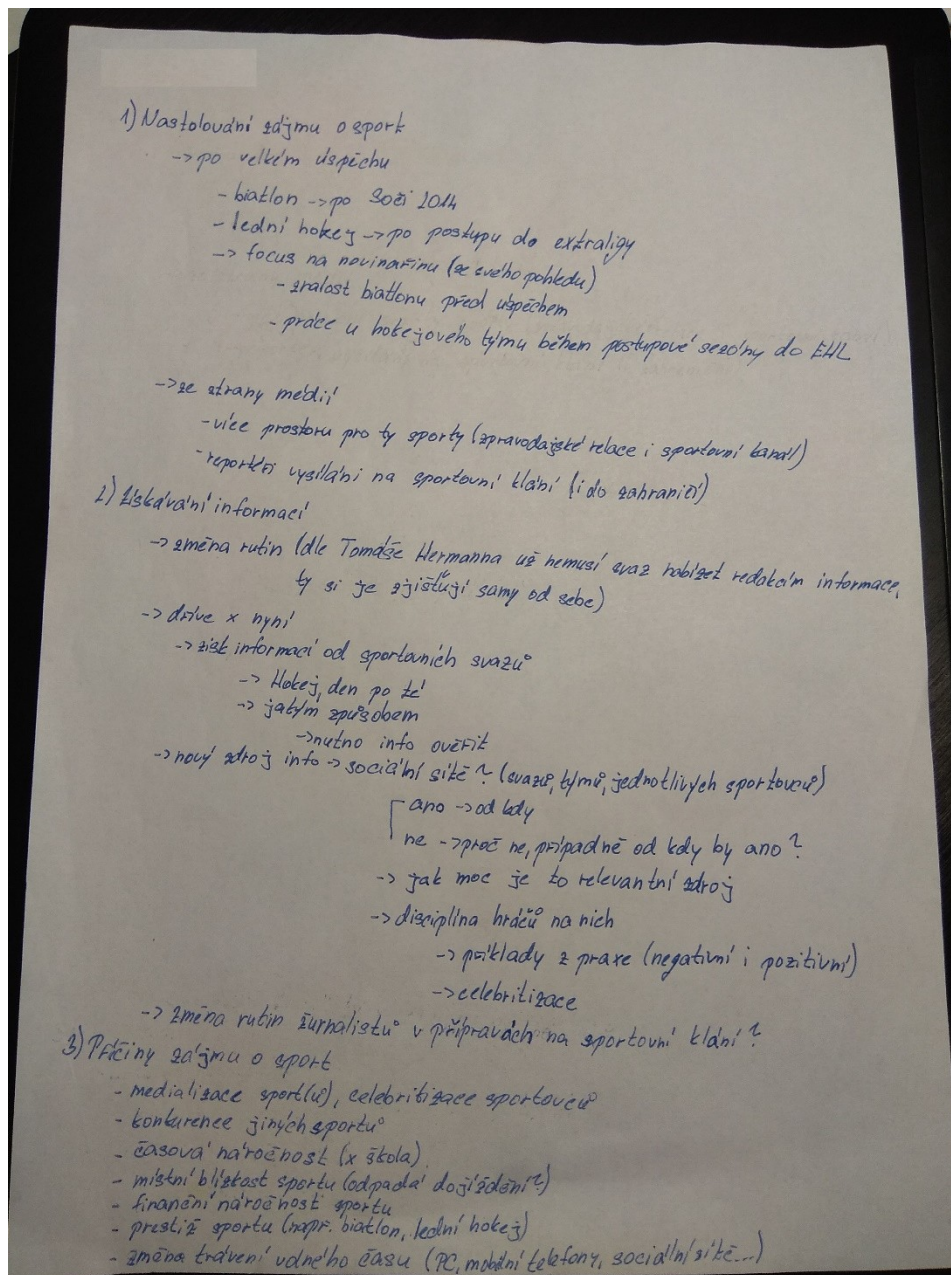 1) Nastolování zájmu o sport
-> po velkém úspěchu
- biatlon -> po Soči 2014
- lední hokej -> po postupu do extraligy
-> focus na novinařinu (ze svého pohledu)
- znalost biatlonu před úspěchem
- práce u hokejového týmu během postupové sezóny do EHL
-> ze strany médií
- více prostoru pro ty sporty (zpravodajské relace i sportovní kanál)
- reportéři vysíláni na sportovní klání (i do zahraničí)
2) Získávání informací
-> změna rutin (dle Tomáše Hermanna už nemusí svaz nabízet redakcím informace,
ty si je zjišťují samy od sebe)
-> dříve x nyní
-> zisk informací od sportovních svazů
-> Hokej, den po té
-> jakým způsobem
-> nutno info ověřit
-> nový zdroj info -> sociální sítě? (svazů, týmů, jednotlivých sportovců)
ano -> od kdy
ne -> proč ne, případně od kdy by ano?
-> jak moc je to relevantní zdroj
-> disciplína hráčů na nich
-> příklady z praxe (negativní i pozitivní)
-> celebritizace
-> změna rutin žurnalistů v přípravách na sportovní klání?
3) Příčiny zájmu o sport
- medializace sport(ů), celebritizace sportovců
- konkurence jiných sportů
- časová náročnost (x škola)
- místní blízkost sportu (odpadá dojíždění?)
- finanční náročnost sportu
- prestiž sportu (např. biatlon, lední hokej)
- změna trávení volného času (PC, mobilní telefony, sociální sítě...)